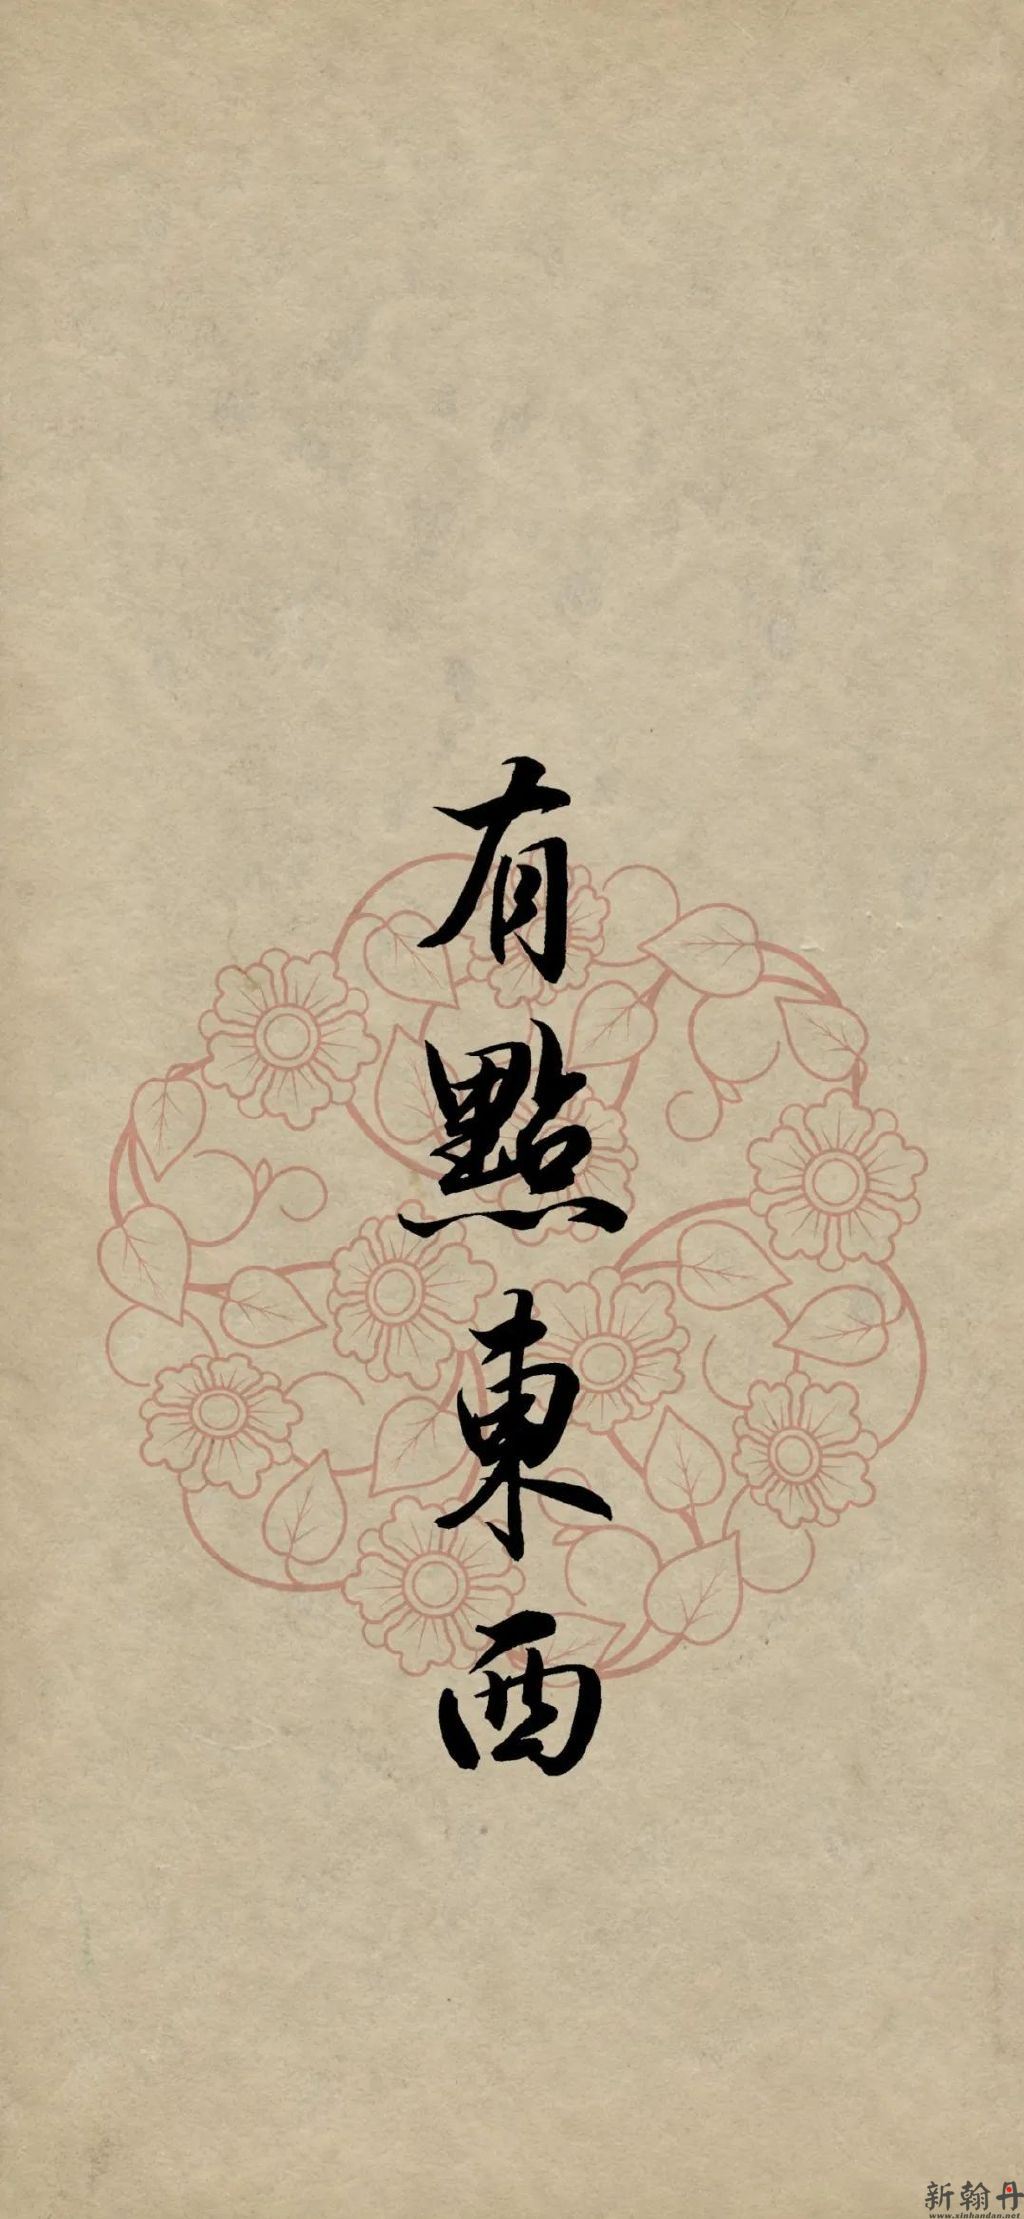 有點東西
新翰丹
www.xinhandan.net